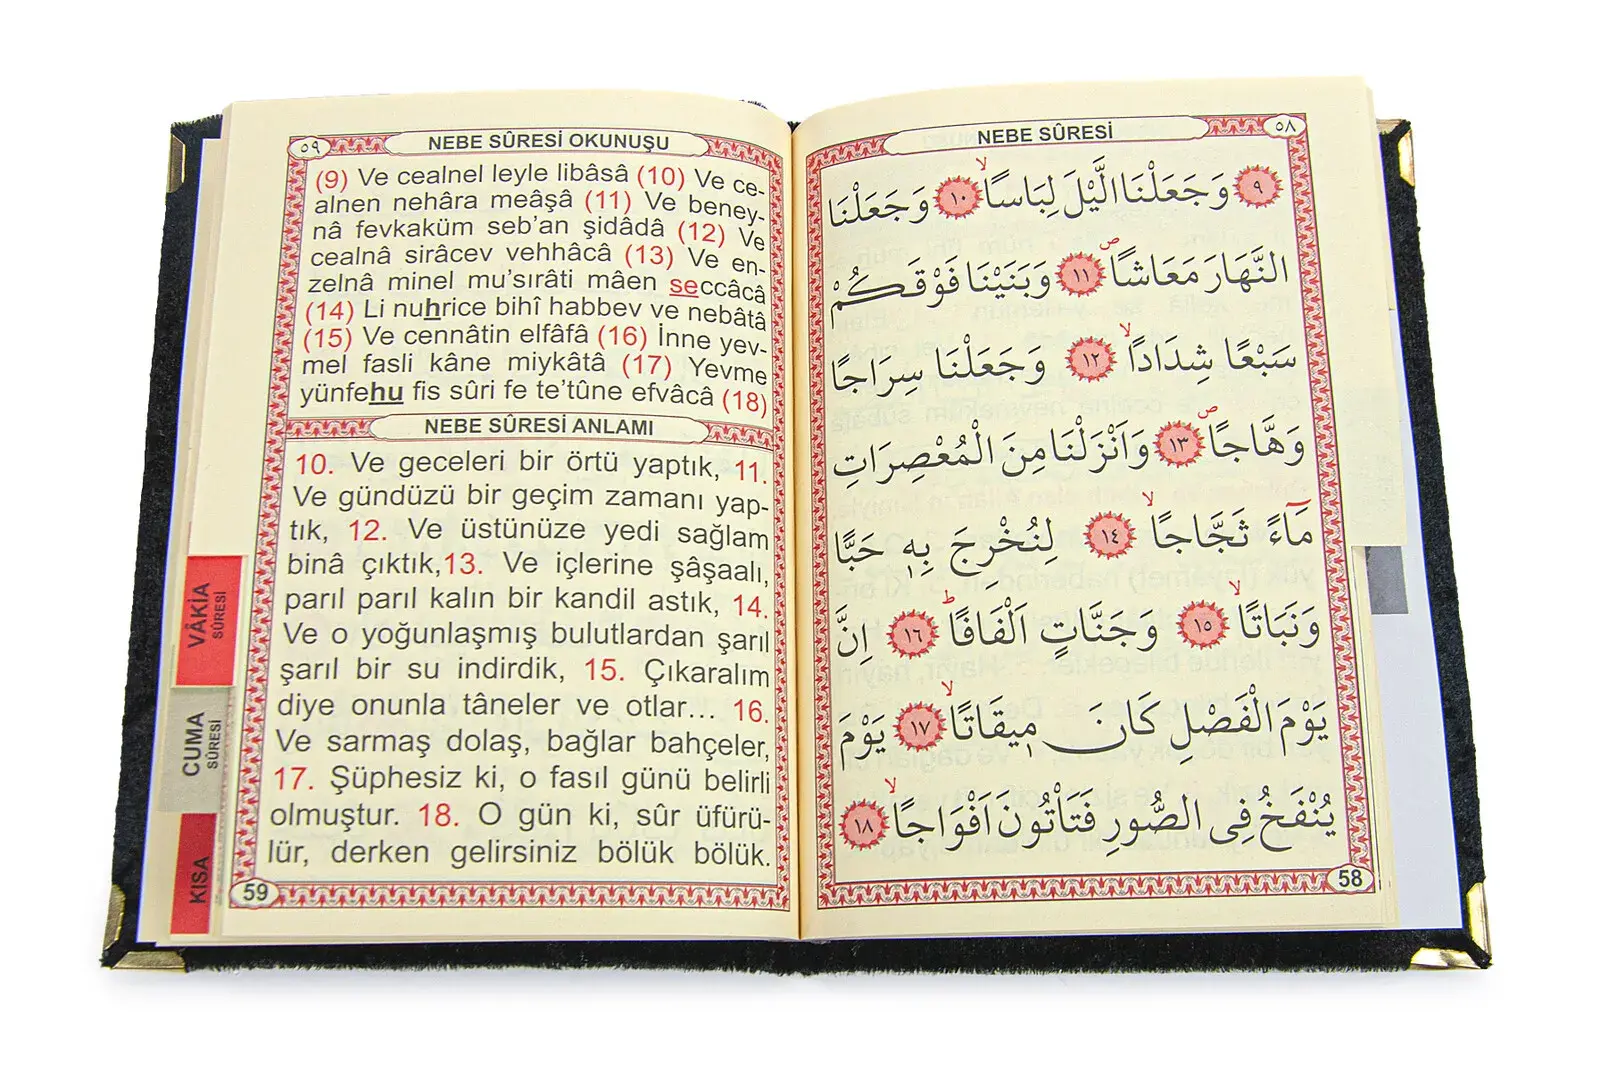 ٥٩
NEBE SÛRESİ OKUNUŞU
(9) Ve cealnel leyle libâsâ (10) Ve ce-
alnen nehâra meâşâ (11) Ve beney-
nâ fevkaküm seb'an şidâdâ (12) Ve
cealnâ sirâcev vehhâcâ (13) Ve en-
zelnâ minel mu'sırâti mâen seccâcâ
(14) Li nuhrice bihî habbev ve nebâtâ
(15) Ve cennâtin elfâfâ (16) İnne yev-
mel fasli kâne miykâtâ (17) Yevme
yünfehu fis sûri fe te'tûne efvâcâ (18)
NEBE SÛRESİ ANLAMI
10. Ve geceleri bir örtü yaptık, 11.
Ve gündüzü bir geçim zamanı yap-
tık, 12. Ve üstünüze yedi sağlam
binâ çıktık,13. Ve içlerine şâşaalı,
parıl parıl kalın bir kandil astık, 14.
Ve o yoğunlaşmış bulutlardan şarıl
şarıl bir su indirdik, 15. Çıkaralım
diye onunla tâneler ve otlar... 16.
Ve sarmaş dolaş, bağlar bahçeler,
17. Şüphesiz ki, o fasıl günü belirli
olmuştur. 18. O gün ki, sûr üfürü-
lür, derken gelirsiniz bölük bölük.
59
VÂKİA
SÛRESİ
CUMA
SÛRESİ
KISA
NEBE SÛRESİ
٥٨
٩ وَجَعَلْنَا الَّيْلَ لِبَاسًاۙ ١٠ وَجَعَلْنَا
النَّهَارَ مَعَاشًاۖ ١١ وَبَنَيْنَا فَوْقَكُمْ
سَبْعًا شِدَادًاۙ ١٢ وَجَعَلْنَا سِرَاجًا
وَهَّاجًاۖ ١٣ وَاَنْزَلْنَا مِنَ الْمُعْصِرَاتِ
مَٓاءً ثَجَّاجًاۙ ١٤ لِنُخْرِجَ بِهٖ حَبًّا
وَنَبَاتًاۙ ١٥ وَجَنَّاتٍ اَلْفَافًاۜ ١٦ اِنَّ
يَوْمَ الْفَصْلِ كَانَ مٖيقَاتًاۙ ١٧ يَوْمَ
يُنْفَخُ فِى الصُّورِ فَتَاْتُونَ اَفْوَاجًاۙ ١٨
58